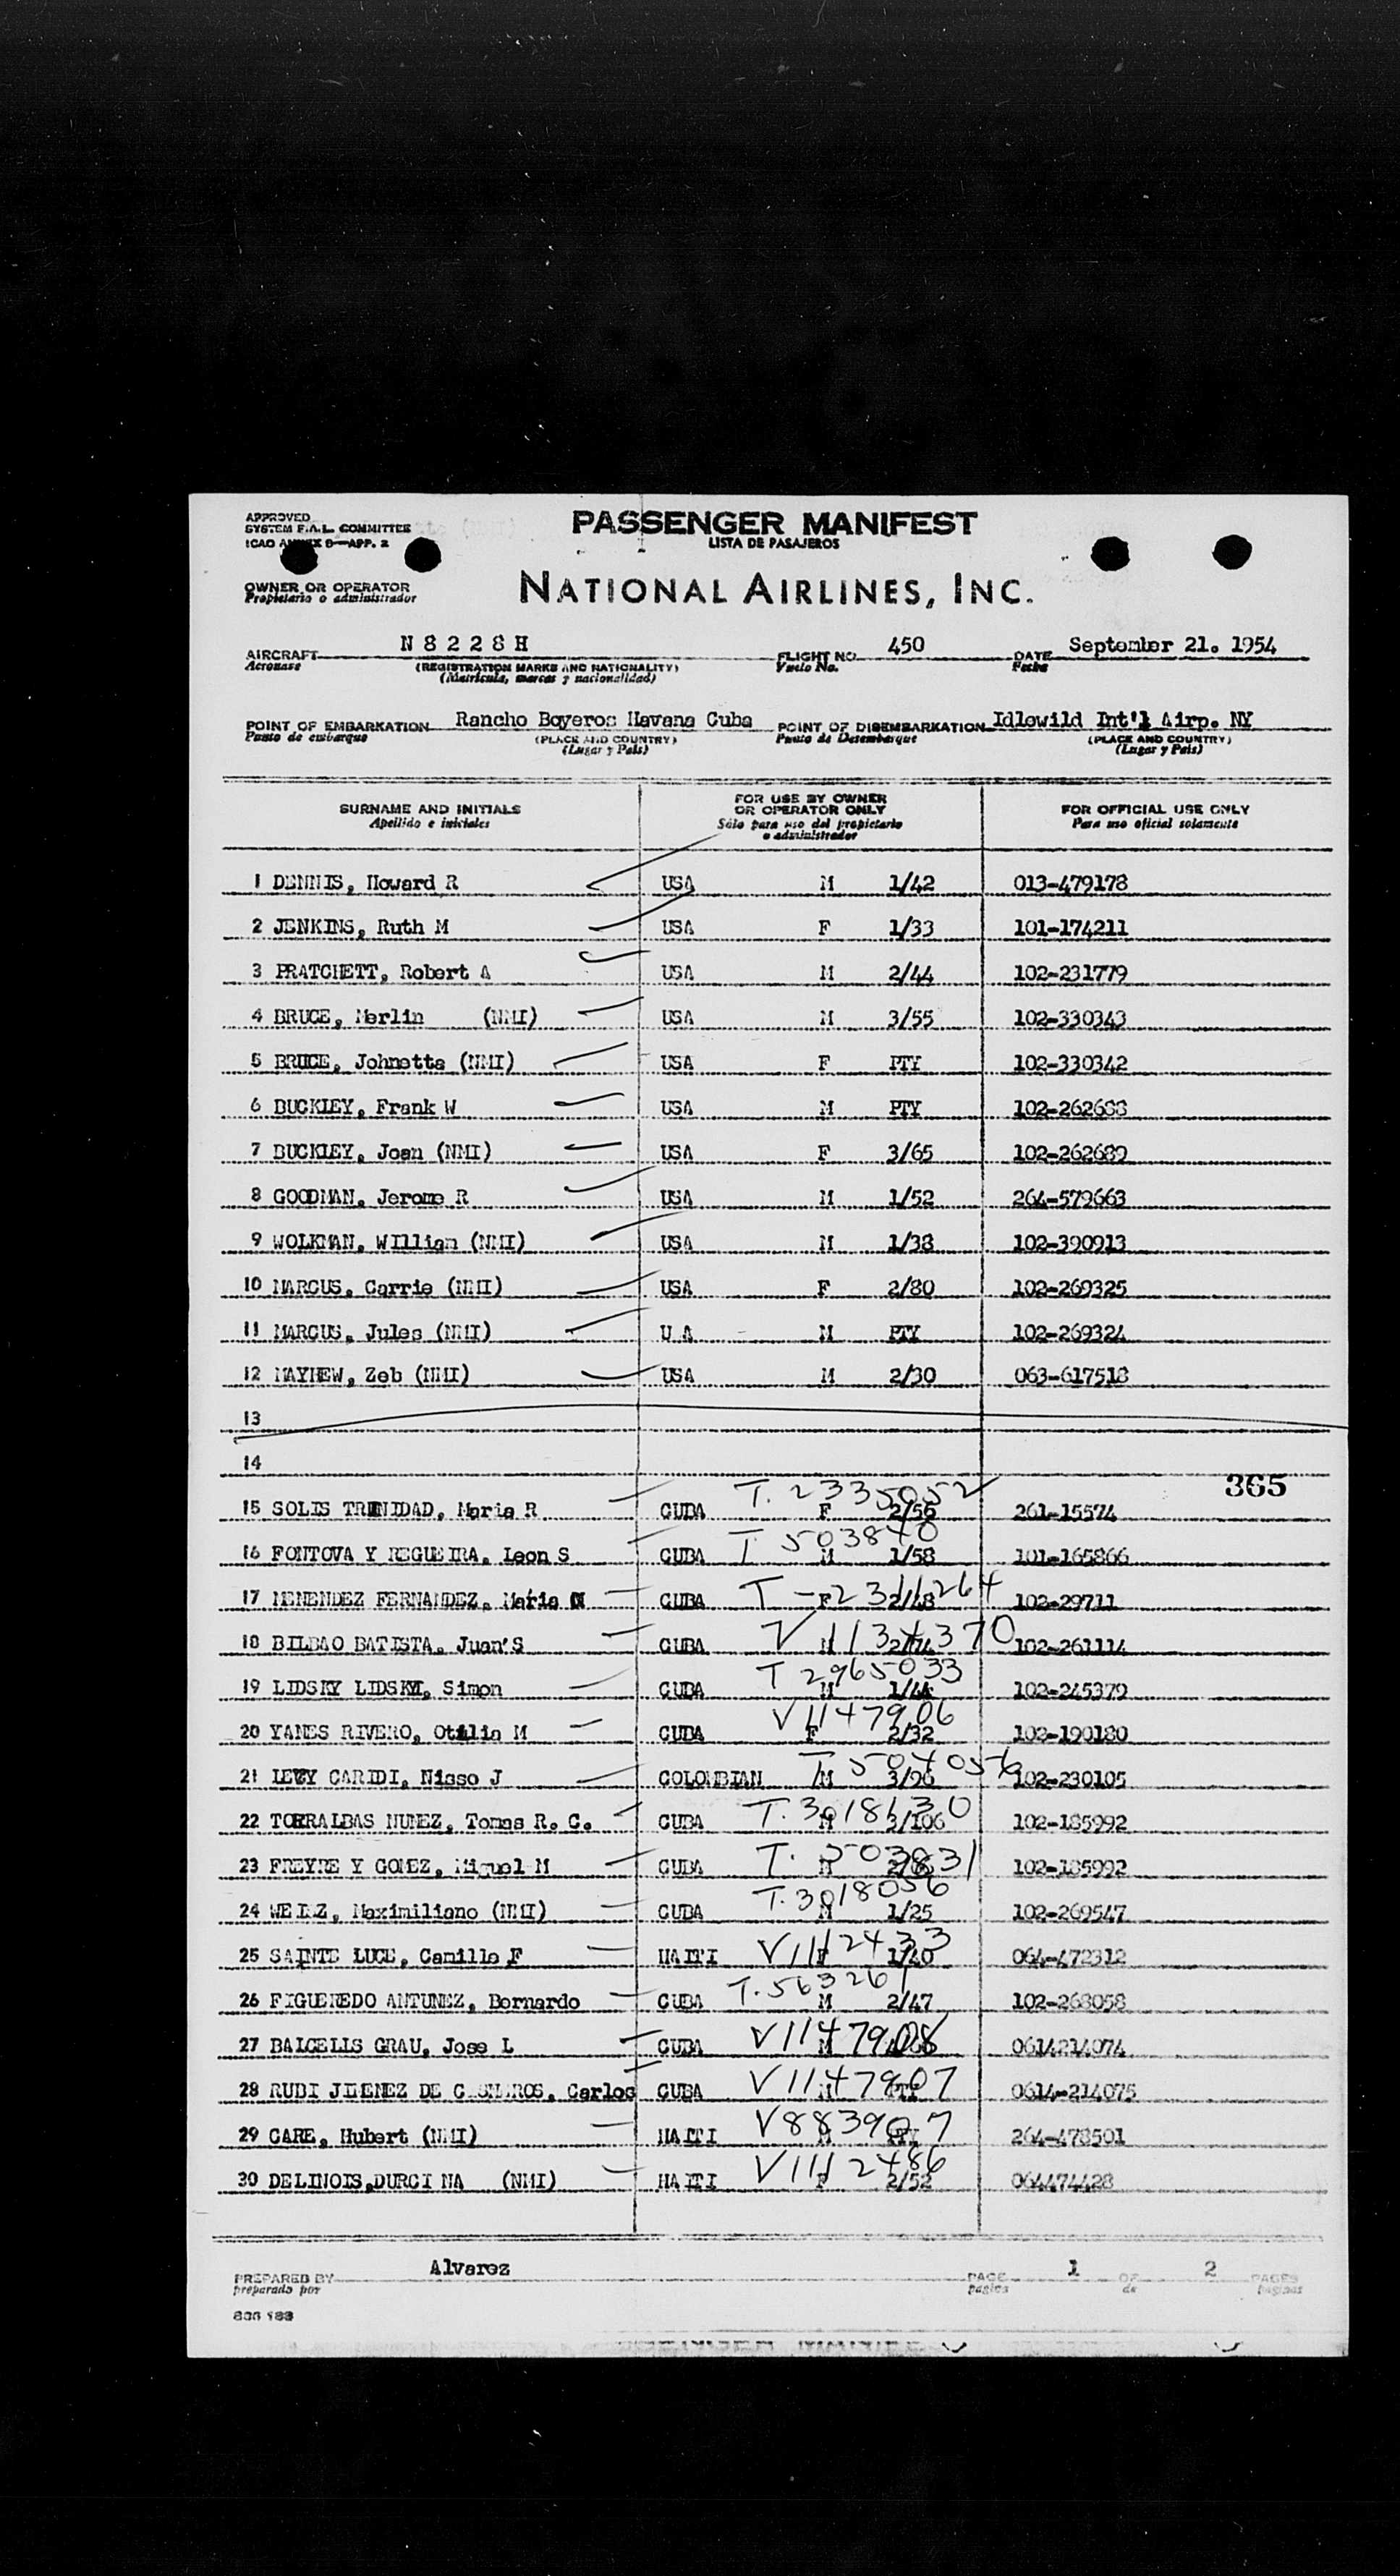 APPROVED
SYSTEM F.A.L. COMMITTEE
ICAO ANNEX 9—APP. 2
PASSENGER MANIFEST
LISTA DE PASAJEROS
OWNER OR OPERATOR
Propietario o administrador
NATIONAL AIRLINES, INC.
AIRCRAFT N 8 2 2 8 H FLIGHT NO. 450 DATE September 21. 1954
Aeronave (REGISTRATION MARKS AND NATIONALITY) Vuelo No. Fecha
(Matricula, marcas y nacionalidad)
POINT OF EMBARKATION Rancho Boyeros Havana Cuba POINT OF DISEMBARKATION Idlewild Int'l Airp. NY
Punto de embarque (PLACE AND COUNTRY) Punto de Desembarque (PLACE AND COUNTRY)
(Lugar y Pais) (Lugar y Pais)
SURNAME AND INITIALS FOR USE BY OWNER OR OPERATOR ONLY FOR OFFICIAL USE ONLY
Apellido e iniciales Sólo para uso del propietario o administrador Para uso oficial solamente
1 DENNIS, Howard R USA M 1/42 013-479178
2 JENKINS, Ruth M USA F 1/33 101-174211
3 PRATCHETT, Robert A USA M 2/44 102-231779
4 BRUCE, Merlin (NMI) USA M 3/55 102-330343
5 BRUCE, Johnetta (NMI) USA F PTY 102-330342
6 BUCKLEY, Frank W USA M PTY 102-262688
7 BUCKLEY, Joan (NMI) USA F 3/65 102-262689
8 GOODMAN, Jerome R USA M 1/52 264-579663
9 WOLKMAN, WIllian (NMI) USA M 1/38 102-390913
10 MARCUS, Carrie (NMI) USA F 2/80 102-269325
11 MARCUS, Jules (NMI) U A M PTY 102-269324
12 MAYHEW, Zeb (NMI) USA M 2/30 063-617518
13
14
365
15 SOLIS TRINIDAD, Maria R CUBA T. 2335052 F 2/56 261-15574
16 FONTOVA Y REGUEIRA, Leon S CUBA T 503840 M 1/58 101-165866
17 MENENDEZ FERNANDEZ, Maria CUBA T-2311264 F 2/48 102-29711
18 BILBAO BATISTA, Juan S CUBA V 1134370 M 102-261114
19 LIDSKY LIDSKY, Simon CUBA T 2965033 M 1/44 102-245379
20 YANES RIVERO, Otilia M CUBA V1147906 F 2/32 102-190180
21 LEVY CARIDI, Nisso J COLOMBIAN T 504056 M 3/96 102-230105
22 TORRALBAS NUNEZ, Tomas R. C. CUBA T. 3018630 M 3/106 102-185992
23 FREYRE Y GOMEZ, Miguel M CUBA T. 503831 M 102-185992
24 WEISZ, Maximiliano (NMI) CUBA T. 3018056 M 1/25 102-269547
25 SAINTE LUCE, Camille F HAITI V1112433 F 1/40 064-472312
26 FIGUEREDO ANTUNEZ, Bernardo CUBA T. 563261 M 2/47 102-268058
27 BALCELLS GRAU, Jose L CUBA V1147908 M 0614214074
28 RUBI JIMENEZ DE CISNEROS, Carlos CUBA V1147907 M PTY 0614-214075
29 CARE, Hubert (NMI) HAITI V883907 M PTY 264-478501
30 DELINOIS,DURCINA (NMI) HAITI V1112486 F 2/52 064474428
PREPARED BY Alvarez PAGE 1 OF 2 PAGES
preparado por pagina de paginas